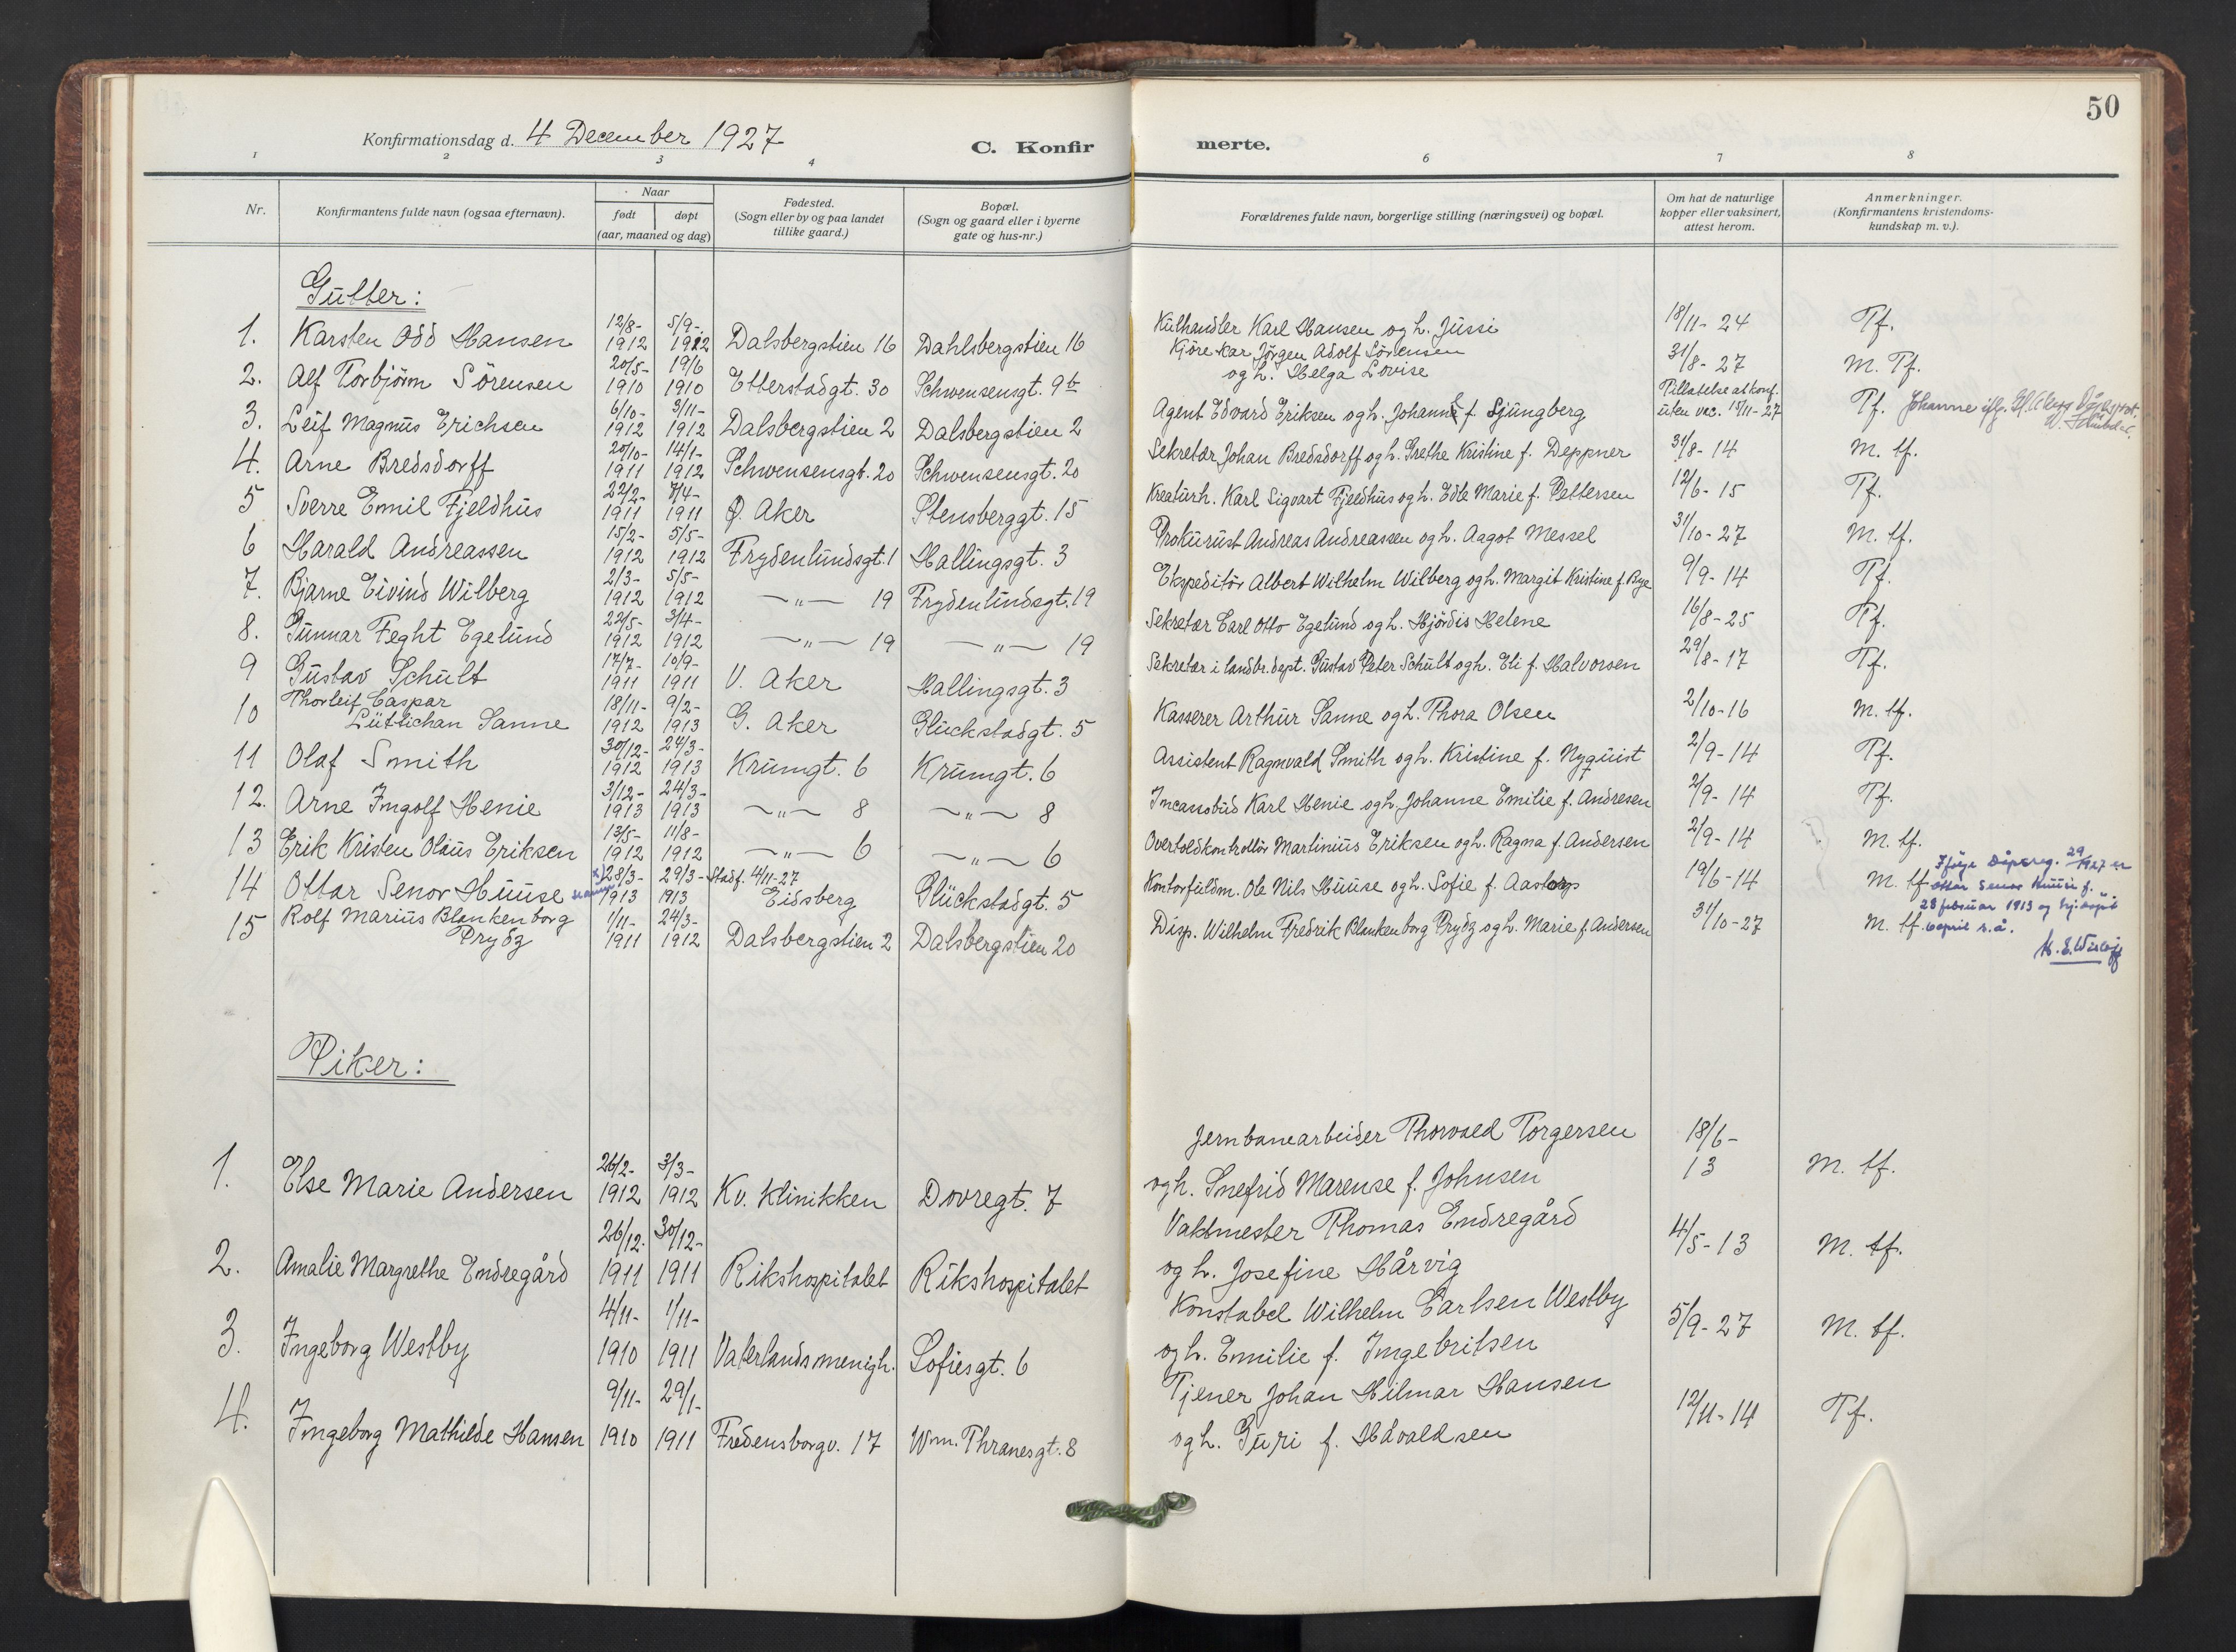 50
Konfirmationsdag d. 4 December 1927
C. Konfir merte.
1 2 3 4 6 7 8
Nr.
Konfirmantens fulde navn (ogsaa efternavn).
Naar
født døpt
(aar, maaned og dag)
Fødested.
(Sogn eller by og paa landet
tillike gaard.)
Bopæl.
(Sogn og gaard eller i byerne
gate og hus-nr.)
Forældrenes fulde navn, borgerlige stilling (næringsvei) og bopæl.
Om hat de naturlige
kopper eller vaksinert,
attest herom.
Anmerkninger.
(Konfirmantens kristendoms-
kundskap m. v.).
Gutter:
1. Karsten Odd Hansen 12/8- 1912 5/9- 1912 Dalsbergstien 16 Dahlsbergstien 16 Kulhandler Karl Hansen og h. Jussi 18/11-24 Tf.
2. Alf Torbjörn Sörensen 20/5- 1910 19/6 1910 Etterstadgt. 30 Schwensensgt. 9b Kjörekar Jörgen Adolf Sörensen
og h. Helga Lovise 31/8-27 M. Tf.
3. Leif Magnus Erichsen 6/10- 1912 3/11- 1912 Dalsbergstien 2 Dalsbergstien 2 Agent Edvard Eriksen og h. Johanne f. Ljungberg Tillatelse at konf.
uten vac. 15/11-27 Tf. Johanne iflg.
4. Arne Bredsdorff 20/10- 1911 14/1- 1912 Schwensensgt. 20 Schwensensgt. 20 Sekretær Johan Bredsdorff og h. Grethe Kristine f. Deppner 31/8-14 M. tf.
5 Sverre Emil Fjeldhus 22/2- 1911 7/4- 1911 Ø. Aker Stensberggt. 15 Kreaturh. Karl Sigvart Fjeldhus og h. Edle Marie f. Pettersen 12/6-15 Tf.
6 Harald Andreassen 15/2- 1912 5/5- 1912 Frydenlundsgt. 1 Hallingsgt. 3 Prokurist Andreas Andreassen og h. Aagot Messel 31/10-27 M. tf.
7. Bjarne Eivind Wilberg 2/3- 1912 5/5- 1912 —"— 19 Frydenlundsgt. 19 Ekspeditör Albert Wilhelm Wilberg og h. Margit Kristine f. Bye 9/9-14 Tf.
8. Gunnar Feght Egelund 22/5- 1912 3/4- 1912 —"— 19 —"— 19 Sekretær Carl Otto Egelund og h. Hjördis Helene 16/8-25 Tf.
9 Gustav Schult 17/7- 1911 10/9- 1911 V. Aker Hallingsgt. 3 Sekretær i landbr. dept. Gustav Peter Schult og h. Eli f. Halvorsen 29/8-17 Tf.
10 Thorleif Caspar
Lüttichan Sanne 18/11- 1912 9/2- 1913 G. Aker Glückstadgt. 5 Kasserer Arthur Sanne og h. Thora Olsen 2/10-16 M. tf.
11 Olaf Smith 30/12- 1912 24/3- 1913 Krumgt. 6 Krumgt. 6 Assistent Ragnvald Smith og h. Kristine f. Nyquist 2/9-14 Tf.
12. Arne Ingolf Henie 3/12- 1913 24/3- 1913 —"— 8 —"— 8 Incassobud Karl Henie og h. Johanne Emilie f. Andresen 2/9-14 Tf.
13 Erik Kristen Olaus Eriksen 13/5- 1912 11/8- 1912 —"— 6 —"— 6 Overtoldkontrollör Martinius Eriksen og h. Ragna f. Andersen 2/9-14 M. tf.
14 Ottar Senor Huuse x) 28/3- 1913 29/3- 1913 Stadf. 4/11-27
Eidsberg Glückstadgt. 5 Kontorfuldm. Ole Nils Huuse og h. Sofie f. Aastorp 19/6-14 M. tf. Ifölge Dåpsreg. 29/ 1927 er
Ottar Senor Huuse f.
28 februar 1913 og
6 april s.å.
15 Rolf Marius Blankenborg
Prydz 1/11- 1911 24/3- 1912 Dalsbergstien 2 Dalsbergstien 20 Disp. Wilhelm Fredrik Blankenborg Prydz og h. Marie f. Andersen 31/10-27 M. tf.
Piker:
1. Else Marie Andersen 26/2- 1912 3/3- 1912 Kv. klinikken Dovregt. 7 Jernbanearbeider Thorvald Torgersen
og h. Snefrid Marense f. Johnsen 18/6- 13 M. tf.
2. Amalie Margrethe Endregård 26/12- 1911 30/12- 1911 Rikshospitalet Rikshospitalet Vaktmester Thomas Endregård
og h. Josefine Hårvig 4/5-13 M. tf.
3. Ingeborg Westby 4/11- 1910 1/11- 1911 Vaterlands menigh. Sofiesgt. 6 Konstabel Wilhelm Carlsen Westby
og h. Emilie f. Ingebritsen 5/9-27 M. tf.
4. Ingeborg Mathilde Hansen 9/11- 1910 29/1- 1911 Fredensborgv. 17 Wm. Thranesgt. 8 Tjener Johan Hilmar Hansen
og h. Guri f. Håvaldsen 12/11-14 Tf.